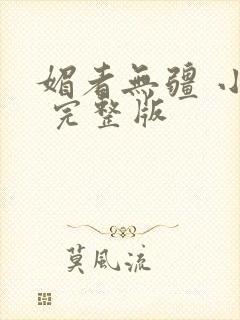 媚者無疆 小
完整版
莫風流